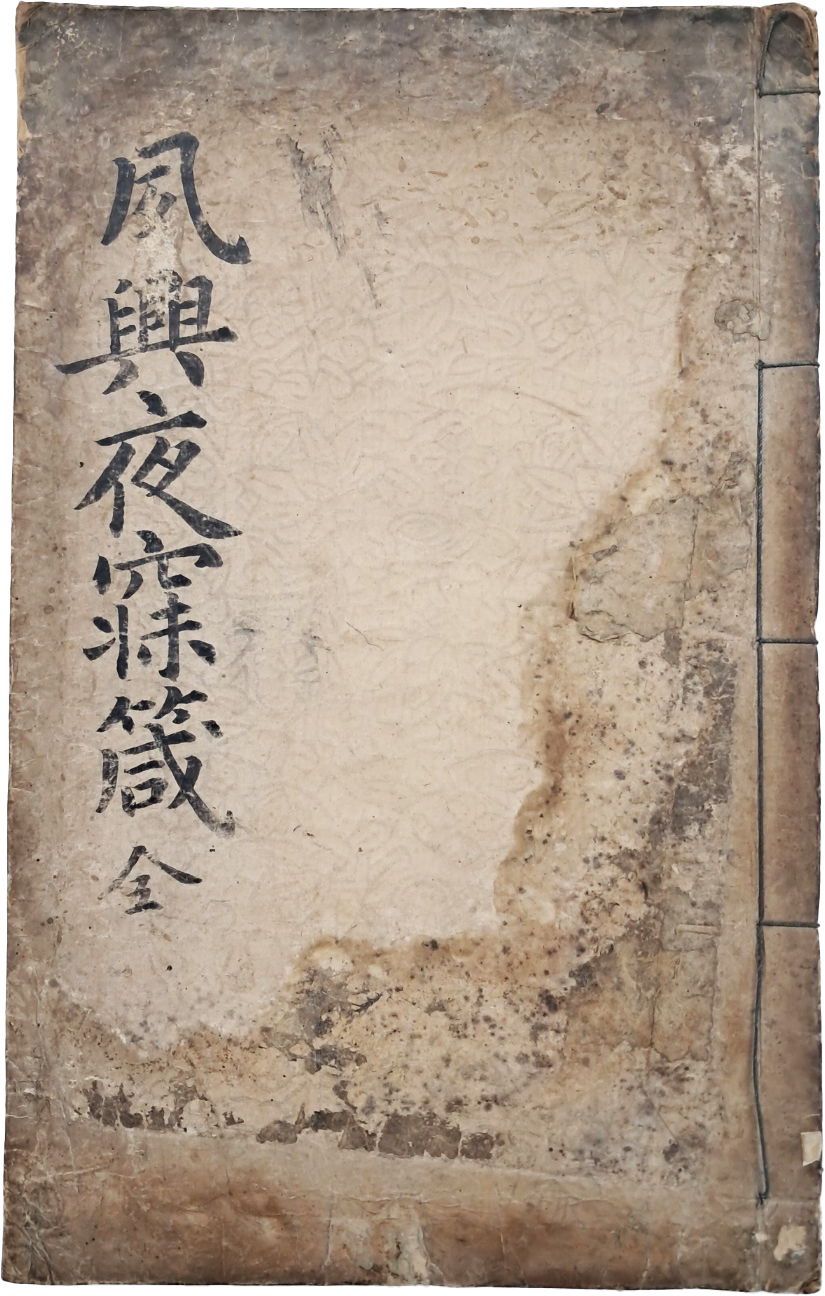 夙興夜寐箴 全